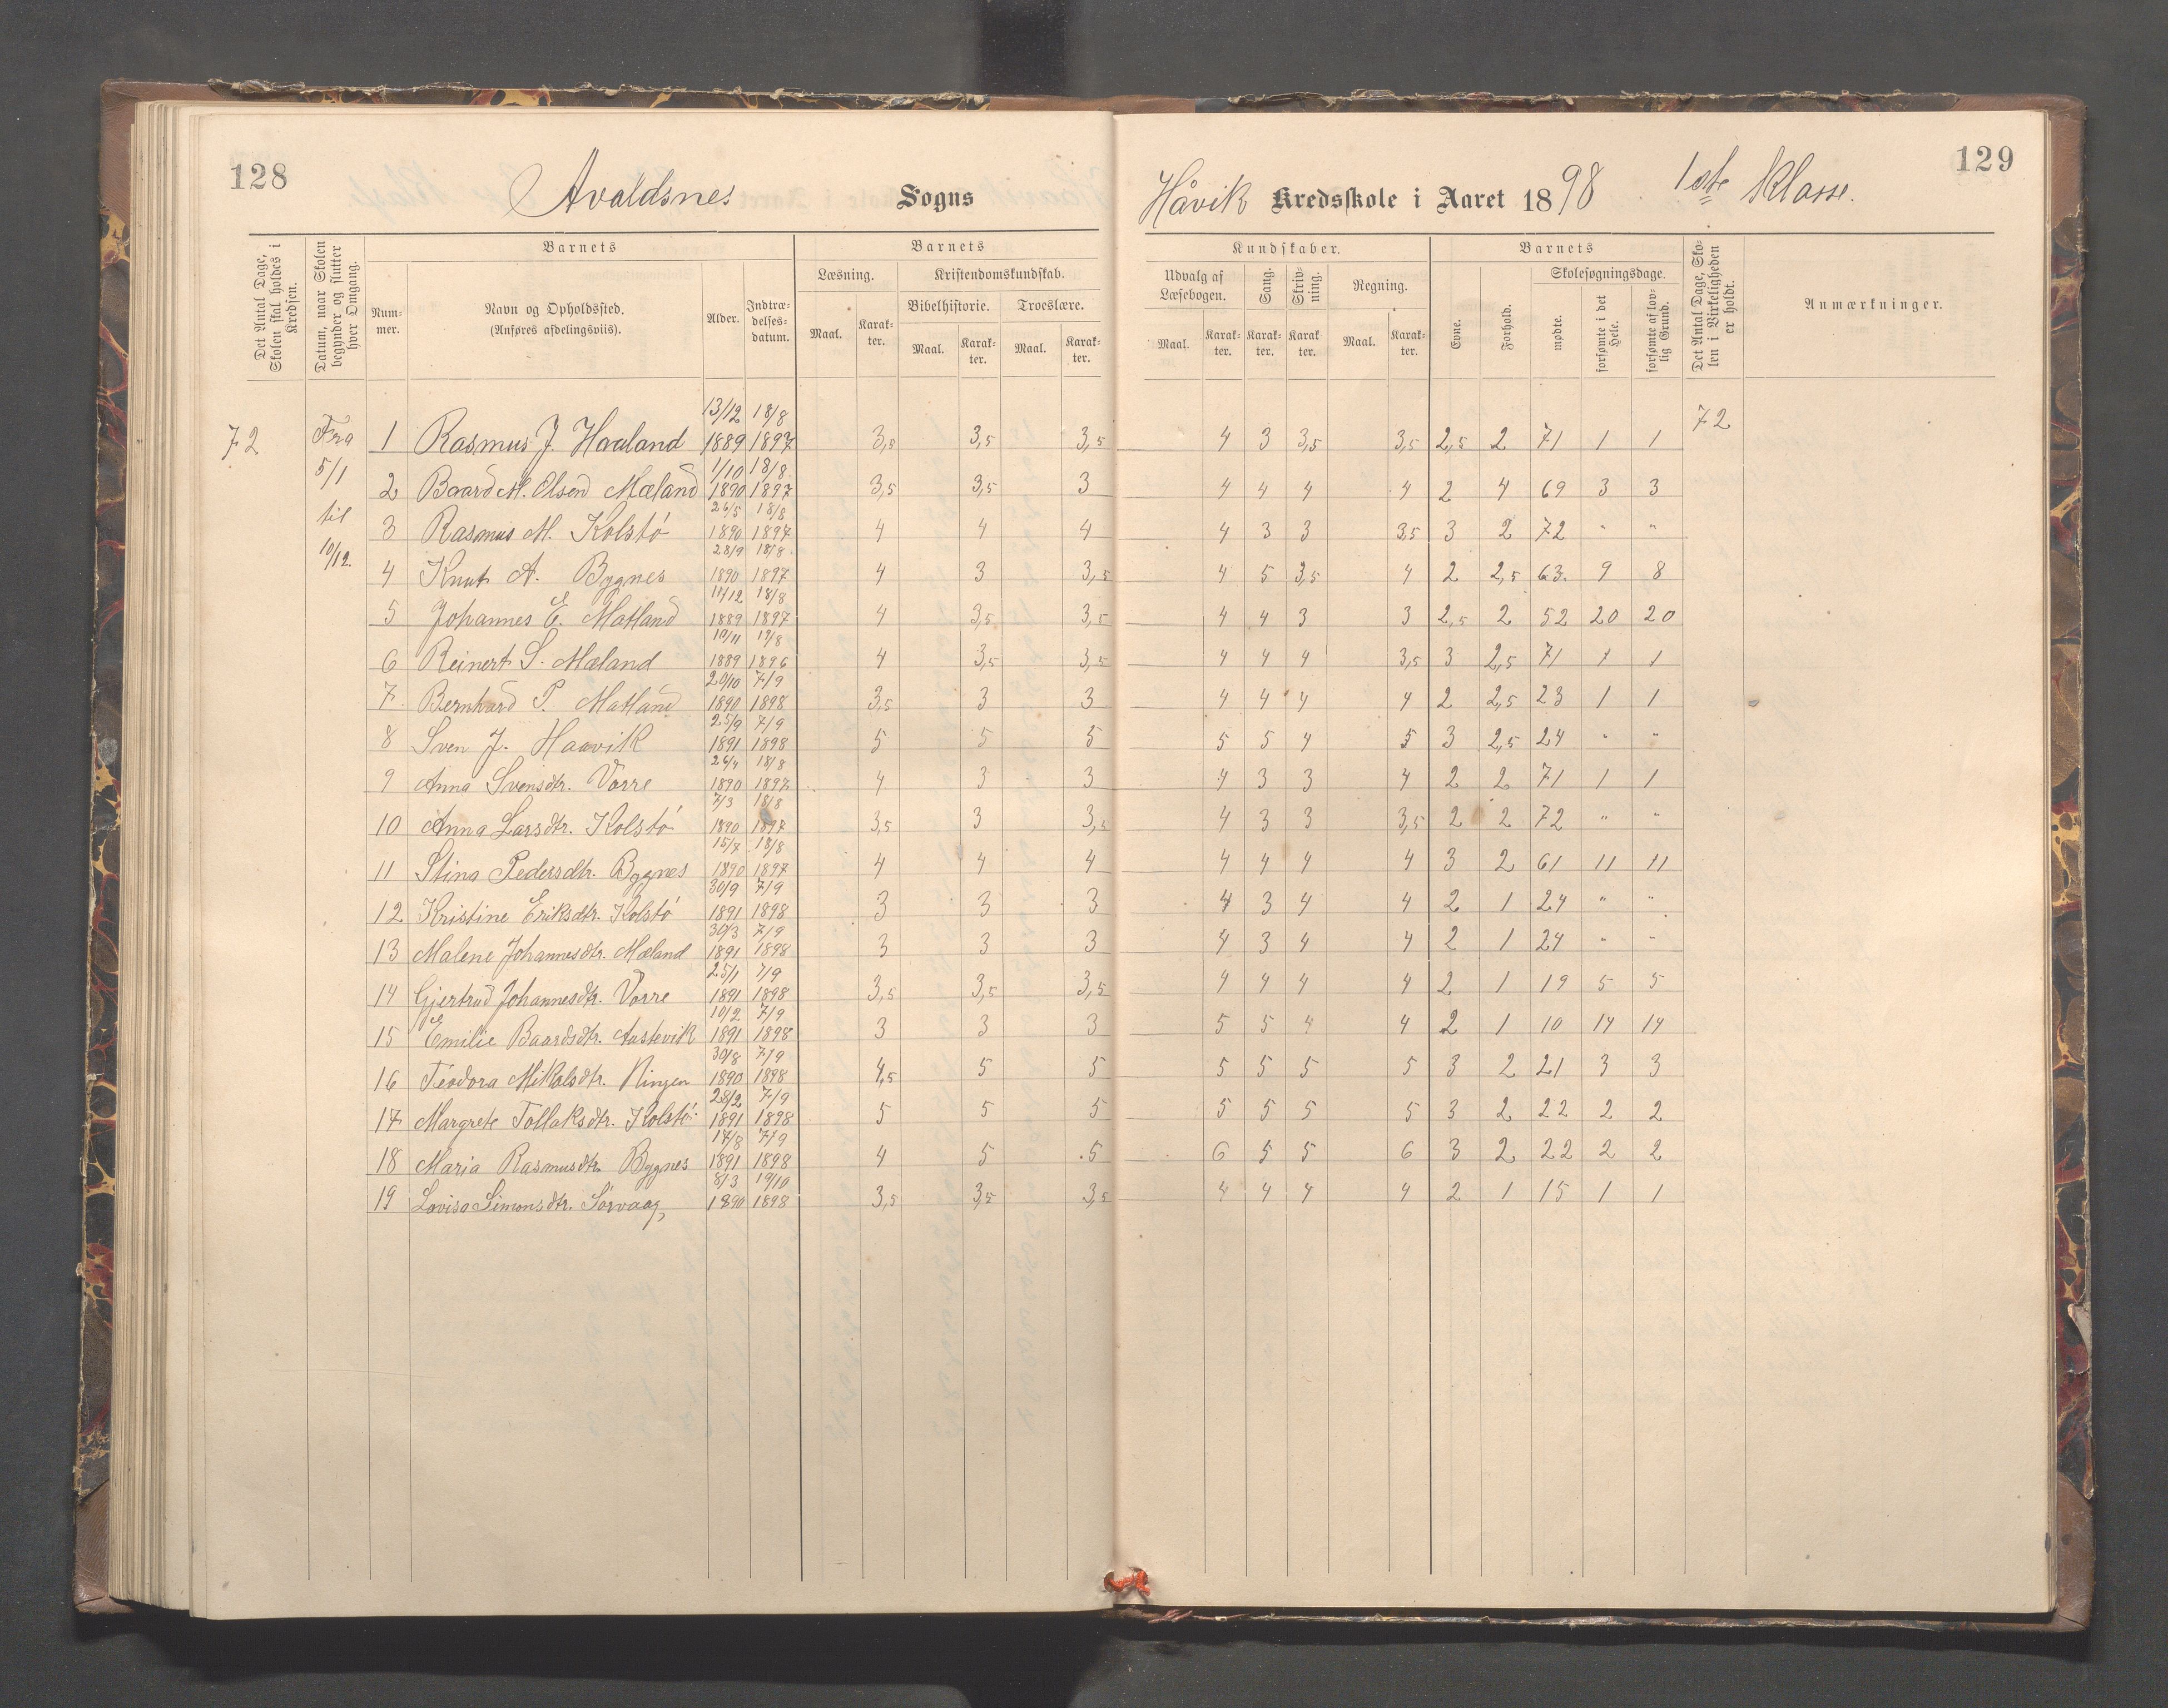 128
Avaldsnes Sogns
Håvik Kredsskole i Aaret 1898 1ste Klasse.
129
Det Antal Dage, Skolen skal holdes i Kredsen.
Datum, naar Skolen begynder og slutter hver Omgang.
Barnets
Num-mer.
Navn og Opholdssted.
(Anføres afdelingsviis).
Alder.
Indtræ-delses-datum.
Barnets
Læsning.
Kristendomskundskab.
Bibelhistorie.
Troeslære.
Maal. Karak-ter. Maal. Karak-ter. Maal. Karak-ter.
Kundskaber.
Udvalg af Læsebogen.
Sang.
Skriv-ning.
Regning.
Maal. Karak-ter. Karak-ter. Karak-ter. Maal. Karak-ter.
Barnets
Evne.
Forhold.
Skolesøgningsdage.
mødte.
forsømte i det Hele.
forsømte af lov-lig Grund.
Det Antal Dage, Sko-len i Virkeligheden er holdt.
Anmærkninger.
72 Fra 5/1 til 10/12.
72
1 Rasmus J. Haaland 13/12 1889 18/8 1897 3,5 3,5 3,5 4 3 3,5 3,5 2,5 2 71 1 1
2 Baard M. Olsen Mæland 1/10 1890 18/8 1897 3,5 3,5 3 4 4 4 4 2 4 69 3 3
3 Rasmus M. Kolstó 26/5 1890 18/8 1897 4 4 4 4 3 3 3,5 3 2 72 " "
4 Knut A. Bygnes 28/9 1890 18/8 1897 4 3 3,5 4 5 3,5 4 2 2,5 63. 9 8
5 Johannes E. Matland 11/12 1889 18/8 1897 4 3,5 3,5 4 4 3 3 2,5 2 52 20 20
6 Reinert S. Mæland 10/11 1889 19/8 1896 4 3,5 3,5 4 4 4 3,5 3 2,5 71 1 1
7. Bernhard P. Matland 20/10 1890 7/9 1898 3,5 3 3 4 4 4 4 2 2,5 23 1 1
8 Sven J. Haavik 25/9 1891 7/9 1898 5 5 5 5 5 4 5 3 2,5 24 " "
9 Anna Svensdtr. Vorre 26/4 1890 18/8 1897 4 3 3 4 3 3 4 2 2 71 1 1
10 Anna Larsdtr. Kolstó 7/3 1890 18/8 1897 3,5 3 3,5 4 3 3 3,5 2 2 72 " "
11 Stina Pedersdtr. Bygnes 15/7 1890 18/8 1897 4 4 4 4 4 4 4 3 2 61 11 11
12 Kristine Eriksdtr. Kolstó 30/9 1891 7/9 1898 3 3 3 4 3 4 4 2 1 24 " "
13 Malene Johannesdtr. Mæland 30/3 1891 7/9 1898 3 3 3 4 3 4 4 2 1 24 " "
14 Gjertrud Johannesdtr. Vorre 25/1 1891 7/9 1898 3,5 3,5 3,5 4 4 4 4 2 1 19 5 5
15 Emilie Baardsdtr. Aastevik 10/2 1891 7/9 1898 3 3 3 5 5 4 4 2 1 10 14 14
16 Teodora Mikalsdtr. 30/8 1890 7/9 1898 4,5 5 5 5 5 5 5 3 2 21 3 3
17 Margrete Tollaksdtr. Kolstó 28/2 1891 7/9 1898 5 5 5 5 5 5 5 3 2 22 2 2
18 Maria Rasmusdtr. Bygnes 17/8 1891 7/9 1898 4 5 5 6 5 5 6 3 2 22 2 2
19 Lovisa Simonsdtr. Sórvaag 8/3 1890 19/10 1898 3,5 3,5 3,5 4 4 4 4 2 1 15 1 1